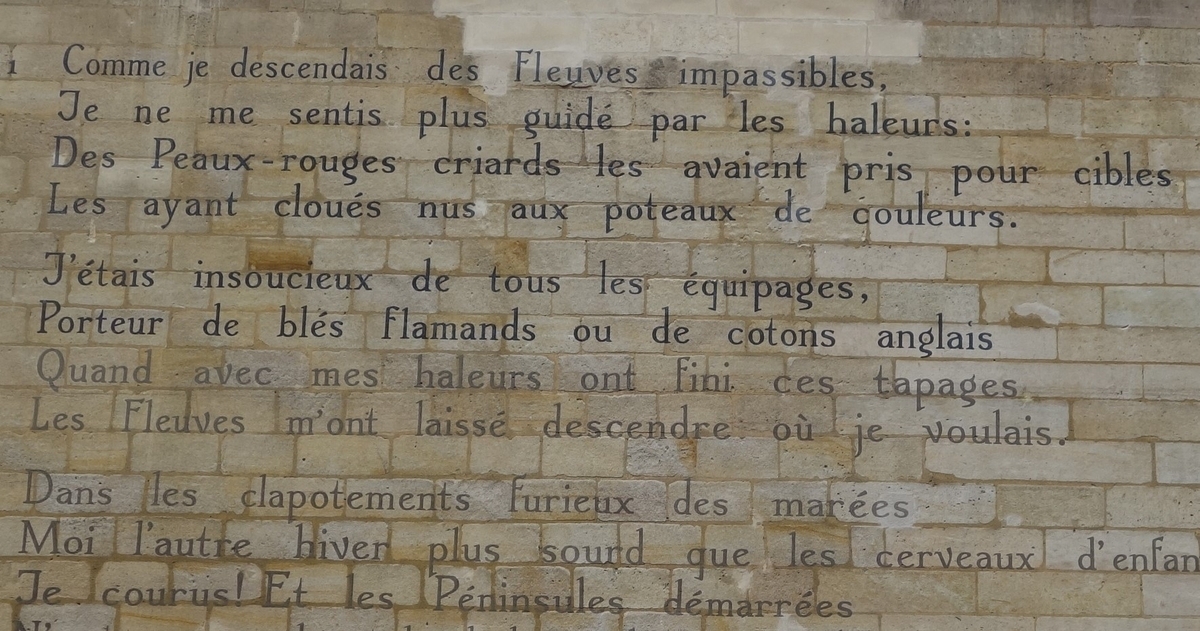 1 Comme je descendais des Fleuves impassibles,
Je ne me sentis plus guidé par les haleurs:
Des Peaux-rouges criards les avaient pris pour cibles
Les ayant cloués nus aux poteaux de couleurs.
J'étais insoucieux de tous les équipages,
Porteur de blés flamands ou de cotons anglais
Quand avec mes haleurs ont fini ces tapages
Les Fleuves m'ont laissé descendre où je voulais.
Dans les clapotements furieux des marées
Moi l'autre hiver plus sourd que les cerveaux d'enfan
Je courus! Et les Péninsules démarrées